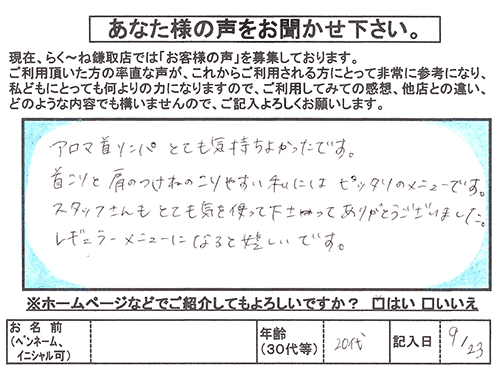 あなた様の声をお聞かせ下さい。
現在、らく～ね鎌取店では「お客様の声」を募集しております。
ご利用頂いた方の率直な声が、これからご利用される方にとって非常に参考になり、
私どもにとっても何よりの力になりますので、ご利用してみての感想、他店との違い、
どのような内容でも構いませんので、ご記入よろしくお願いします。
アロマ首リンパ とても気持ちよかったです。
首こりと肩のつけねのこりやすい私には ピッタリのメニューです。
スタッフさんも とても気を使って下さってありがとうございました。
レギュラーメニューになると嬉しいです。
※ホームページなどでご紹介してもよろしいですか？ □はい □いいえ
お名前
(ペンネーム、
イニシャル可)
年齢
(30代等)
20代
記入日
9/23